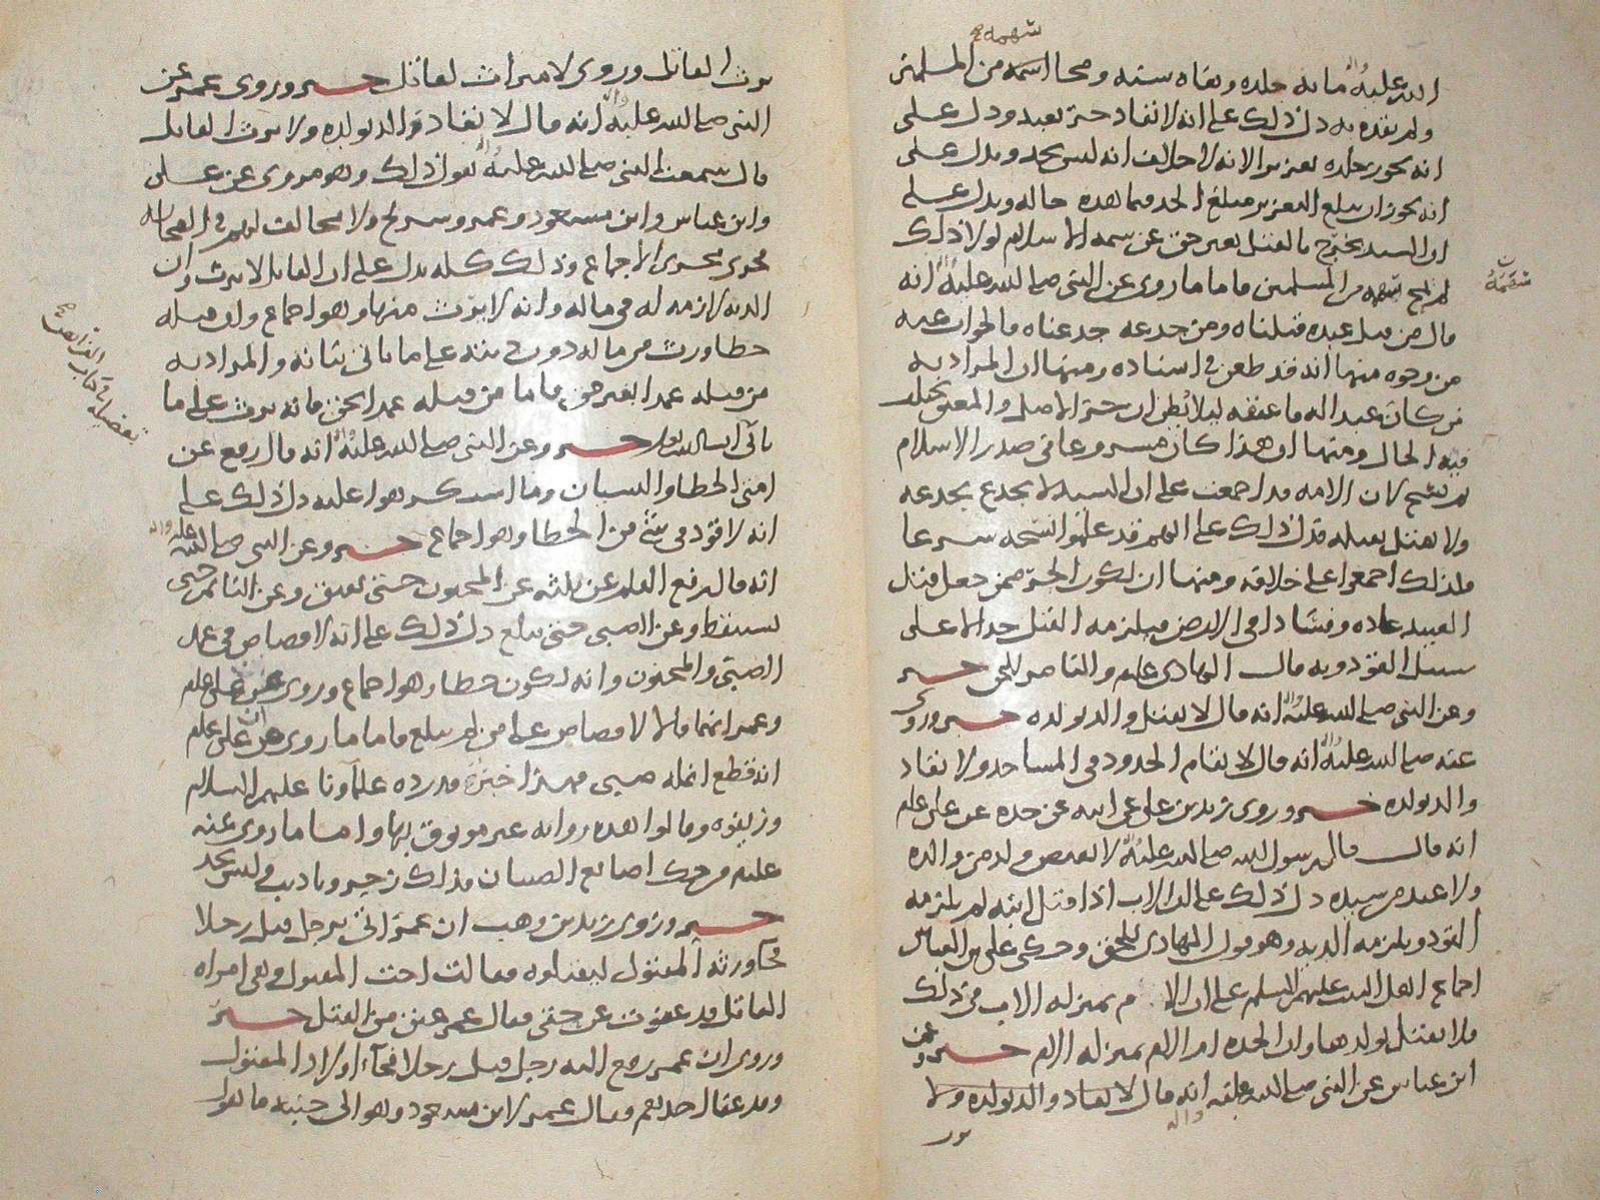 سهمه
الله عليه واله مائه جلده ونفاه سنه ومحا اسمه من المسلمين
ولم يقده به دل ذلك على انه لا تقاد حر بعبد ودل على
انه يجوز جلده تعزيرا لانه لا خلاف انه ليس بحد ويدل على
انه يجوز ان يبلغ التعزير مبلغ الحد فيما هذه حاله ويدل على
ان السيد يخرج بالقتل بغير حق عن سمه الاسلام لولا ذلك
لم يمح سهمه من المسلمين فاما ما روي عن النبي صلى الله عليه واله انه
قال من قتل عبده قتلناه ومن جدعه جدعناه فالجواب عنه
من وجوه منها انه قد طعن في اسناده ومنها ان المراد به
من كان عبدا له فاعتقه ليلا يظن ان حر الاصل والمعتق يختلف
فيه الحال ومنها ان هذا كان مشروعا في صدر الاسلام
ثم نسخ لان الامه قد اجمعت على ان السيد لا يجدع بجدعه
ولا يقتل بقتله فدل ذلك على انهم قد علموا نسخه شرعا
فلذلك اجمعوا على خلافه ومنها ان يكون الحر ممن جعل قتل
العبيد عاده وفسادا في الارض فيلزمه القتل حدا لا على
سبيل القود وبه قال الهادي علم والناصر للحق خبر
وعن النبي صلى الله عليه واله انه قال لا يقتل والد بولده خبر وروي
عنه صلى الله عليه واله انه قال لا يقام الحدود في المساجد ولا يقاد
والد بولده خبر وروى زيد بن علي عن ابيه عن جده عن علي علم
انه قال قال رسول الله صلى الله عليه واله لا يقتص ولد من والده
ولا عبد من سيده دل ذلك على ان الاب اذا قتل ابنه لم يلزمه
القود ويلزمه الديه وهو قول الهادي للحق وحكى علي بن العباس
اجماع اهل البيت عليهم السلم على ان الام بمنزله الاب في ذلك
فلا يقتل بولدها وان الجده ام الام بمنزله الام خبر وعن
ابن عباس عن النبي صلى الله عليه واله انه قال لا يقاد والد بولده ولا
يرث القاتل وروي لا ميراث لقاتل خبر وروى عمر عن
النبي صلى الله عليه واله انه قال لا يقاد والد بولده ولا يرث القاتل
قال سمعت النبي صلى الله عليه واله يقول ذلك وهو مروي عن علي
وابن عباس وابن مسعود وعمر وشريح ولا مخالف لهم في الصحابه
فجرى مجرى الاجماع وذلك كله يدل على ان القاتل لا يرث وان
الديه لازمه له في ماله وانه لا يرث منها وهو اجماع وان قتله
خطا ورث من ماله دون ديته على ما ياتي بيانه والمراد به
من قتله عمدا بغير حق فاما من قتله عمدا بحق فانه يرث على ما
ياتي ان شا الله تعالى خبر وعن النبي صلى الله عليه واله انه قال رفع عن
امتي الخطا والنسيان وما استكرهوا عليه دل ذلك على
انه لا قود في شي من الخطا وهو اجماع خبر وعن النبي صلى الله عليه واله
انه قال رفع القلم عن ثلثه عن المجنون حتى يفيق وعن النائم حتى
يستيقظ وعن الصبي حتى يبلغ دل ذلك على انه لا قصاص في عمد
الصبي والمجنون وانه يكون خطا وهو اجماع وروي عن علي علم
وعمر انهما قالا لا قصاص على من لم يبلغ فاما ما روي عن علي علم
انه قطع انمله صبي فهذا خبر قد رده علماونا عليهم السلام
وزيفوه وقالوا هذه روايه غير موثوق بها واما ما روي عنه
عليه من حك اصابع الصبيان فذلك زجر وتاديب وليس بحد
خبر وروى زيد بن وهب ان عمر اتي برجل قتل رجلا
فجا ورثه المقتول ليقتلوه فقالت اخت المقتول وهي امراه
القاتل قد عفوت عن حقي فقال عمر عتق من القتل خبر
وروي ان عمر رفع اليه رجل قتل رجلا فجاء اولاد المقتول
وقد عفا احدهم فقال عمر لابن مسعود وهو الى جنبه ما تقول